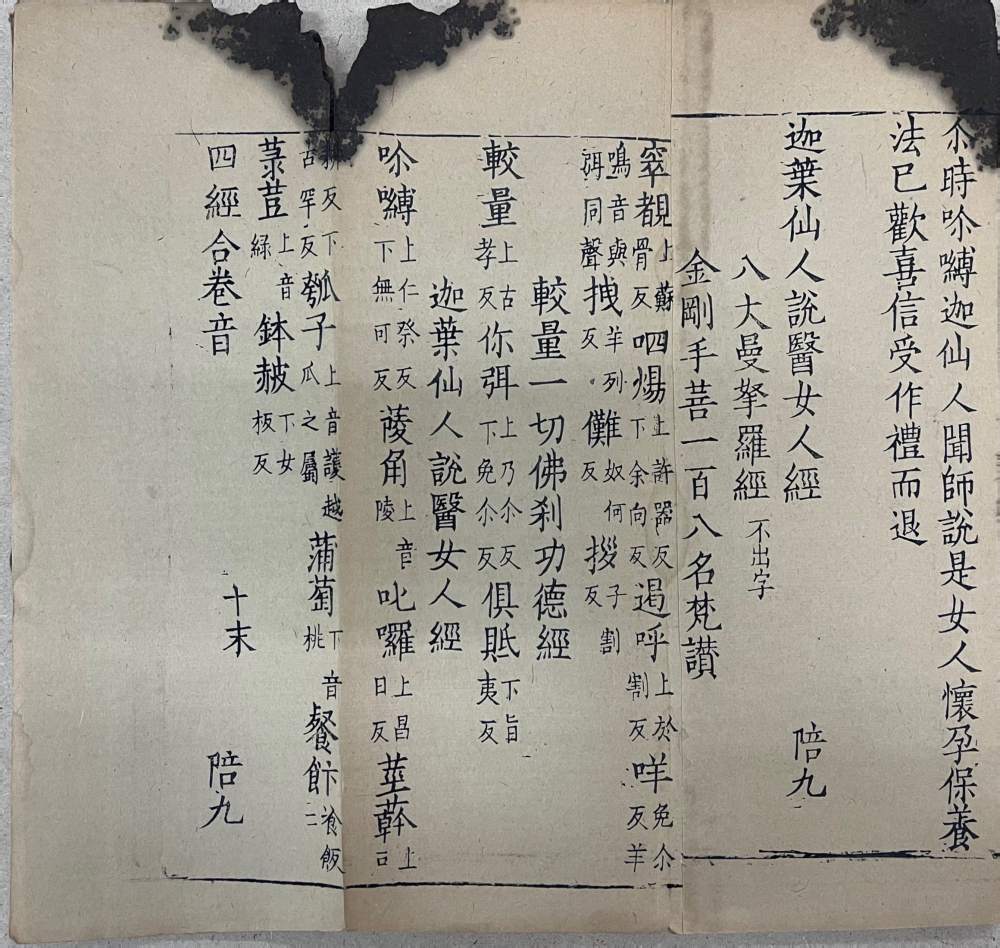 尒時吤嚩迦仙人聞師説是女人懷孕保養
法已歡喜信受作禮而退
迦葉仙人説醫女人經 陪九
八大曼拏羅經 不出字
金剛手菩一百八名梵讃
窣覩 上蘇骨反 呬煬 上許器反下余向反 遏呼 上於割反 哶 免尒反羊
鳴音與弭同聲 拽 羊列反 儺 奴何反 拶 子割反
較量一切佛刹功德經
較量 上古孝反 你弭 上乃尒反下免尒反 俱胝 下旨夷反
迦葉仙人説醫女人經
吤嚩 上仁祭反下無可反 蔆角 上音陵 叱囉 上昌日反 莖蓒 上戸
耕反下古罕反 瓠子 上音護越瓜之屬 蒲萄 下音桃 餐飰 二飡飯
菉荳 上音綠 鉢赧 下女板反
四經合卷音 十末 陪九